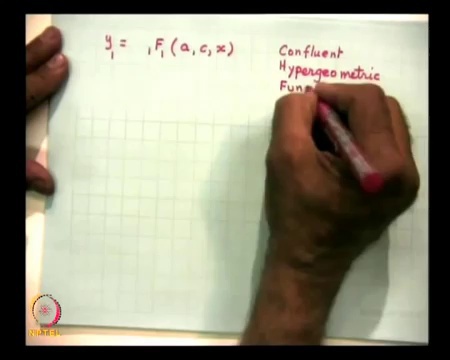 y₁ = ₁F₁ (a, c, x)
Confluent
Hypergeometric
Fun
NPTEL